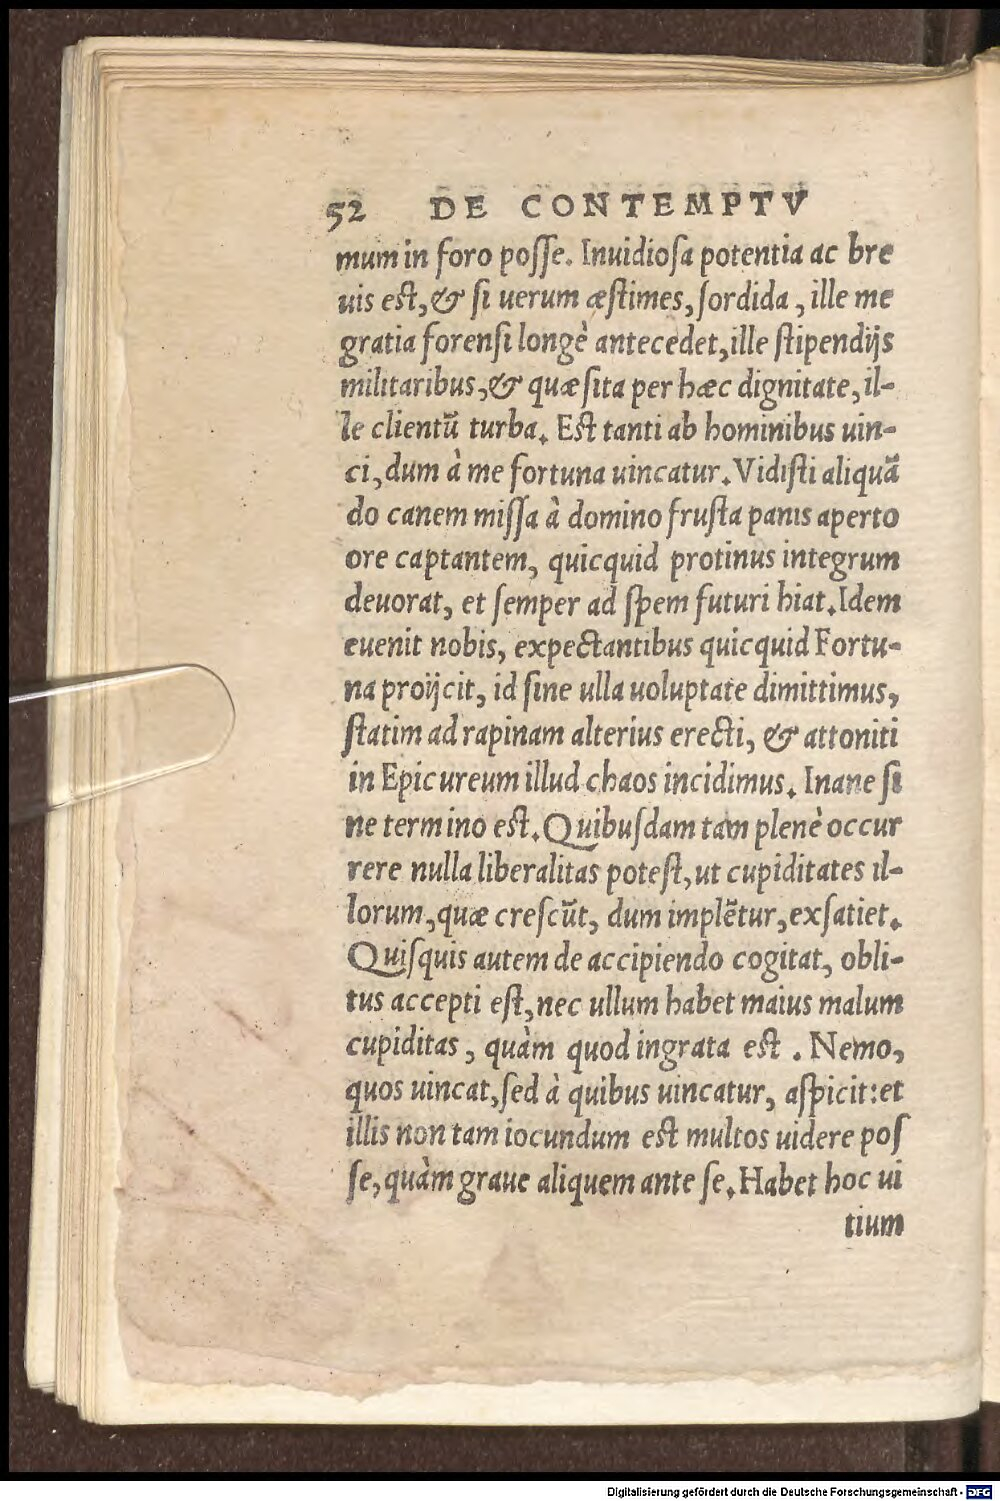 52 DE CONTEMPTV
mum in foro posse. Inuidiosa potentia ac bre
uis est, & si uerum æstimes, sordida, ille me
gratia forensi longè antecedet, ille stipendijs
militaribus, & quæsita per hæc dignitate, il-
le clientũ turba. Est tanti ab hominibus uin-
ci, dum à me fortuna uincatur. Vidisti aliquã
do canem missa à domino frusta panis aperto
ore captantem, quicquid protinus integrum
deuorat, et semper ad spem futuri hiat. Idem
euenit nobis, expectantibus quicquid Fortu-
na proijcit, id sine ulla uoluptate dimittimus,
statim ad rapinam alterius erecti, & attoniti
in Epicureum illud chaos incidimus. Inane si
ne termino est. Quibusdam tam plenè occur
rere nulla liberalitas potest, ut cupiditates il-
lorum, quæ crescũt, dum implẽtur, exsatiet.
Quisquis autem de accipiendo cogitat, obli-
tus accepti est, nec ullum habet maius malum
cupiditas, quàm quod ingrata est. Nemo,
quos uincat, sed à quibus uincatur, aspicit: et
illis non tam iocundum est multos uidere pos
se, quàm graue aliquem ante se. Habet hoc ui
tium
Digitalisierung gefördert durch die Deutsche Forschungsgemeinschaft - DFG